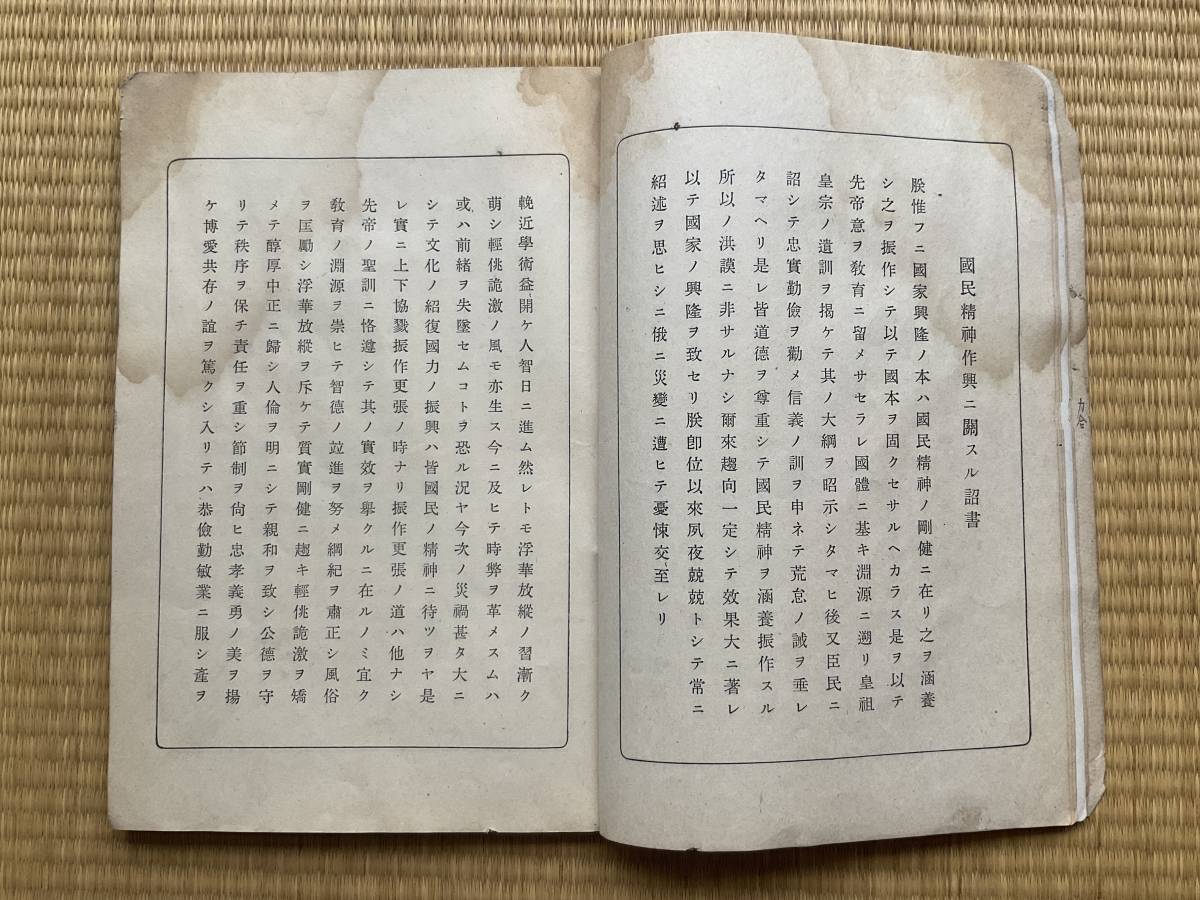 國民精神作興ニ關スル詔書
朕惟フニ國家興隆ノ本ハ國民精神ノ剛健ニ在リ之ヲ涵養
シ之ヲ振作シテ以テ國本ヲ固クセサルヘカラス是ヲ以テ
先帝意ヲ敎育ニ留メサセラレ國體ニ基キ淵源ニ遡リ皇祖
皇宗ノ遺訓ヲ揭ケテ其ノ大綱ヲ昭示シタマヒ後又臣民ニ
詔シテ忠實勤儉ヲ勸メ信義ノ訓ヲ申ネテ荒怠ノ誡ヲ垂レ
タマヘリ是レ皆道德ヲ尊重シテ國民精神ヲ涵養振作スル
所以ノ洪謨ニ非サルナシ爾來趨向一定シテ效果大ニ著レ
以テ國家ノ興隆ヲ致セリ朕卽位以來夙夜兢兢トシテ常ニ
紹述ヲ思ヒシニ俄ニ災變ニ遭ヒテ憂悚交〻至レリ
輓近學術益〻開ケ人智日ニ進ム然レトモ浮華放縱ノ習漸ク
萌シ輕佻詭激ノ風モ亦生ス今ニ及ヒテ時弊ヲ革メスムハ
或ハ前緒ヲ失墜セムコトヲ恐ル況ヤ今次ノ災禍甚タ大ニ
シテ文化ノ紹復國力ノ振興ハ皆國民ノ精神ニ待ツヲヤ是
レ實ニ上下協戮振作更張ノ時ナリ振作更張ノ道ハ他ナシ
先帝ノ聖訓ニ恪遵シテ其ノ實效ヲ擧クルニ在ルノミ宜ク
敎育ノ淵源ヲ崇ヒテ智德ノ竝進ヲ努メ綱紀ヲ肅正シ風俗
ヲ匡勵シ浮華放縱ヲ斥ケテ質實剛健ニ趨キ輕佻詭激ヲ矯
メテ醇厚中正ニ歸シ人倫ヲ明ニシテ親和ヲ致シ公德ヲ守
リテ秩序ヲ保チ責任ヲ重シ節制ヲ尙ヒ忠孝義勇ノ美ヲ揚
ケ博愛共存ノ誼ヲ篤クシ入リテハ恭儉勤敏業ニ服シ產ヲ